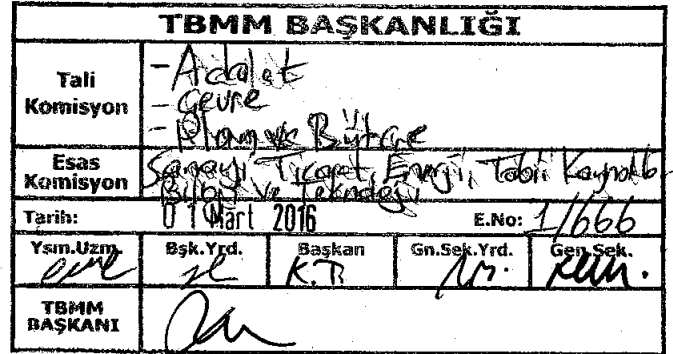 TBMM BAŞKANLIĞI
Tali Komisyon
- Adalet
- Çevre
- Plan ve Bütçe
Esas Komisyon
Sanayi, Ticaret, Enerji, Tabii Kaynaklar
Bilgi ve Teknoloji
Tarih: 01 Mart 2016 E.No: 1/666
Ysm.Uzm. Bşk.Yrd. Başkan Gn.Sek.Yrd. Gen.Sek.
K.T.
TBMM BAŞKANI